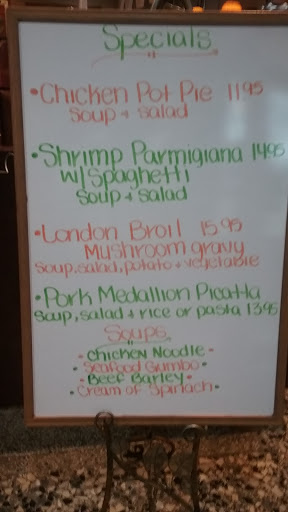 Specials
•Chicken Pot Pie 1195
Soup + salad
•Shrimp Parmigiana 1495
W/ Spaghetti
Soup + salad
•London Broil 1595
Mushroom gravy
Soup, salad, potato + vegetable
•Pork Medallion Picatta
Soup, salad + rice or pasta 1395
Soups
- Chicken Noodle -
• Seafood Gumbo •
• Beef Barley •
• Cream of Spinach •